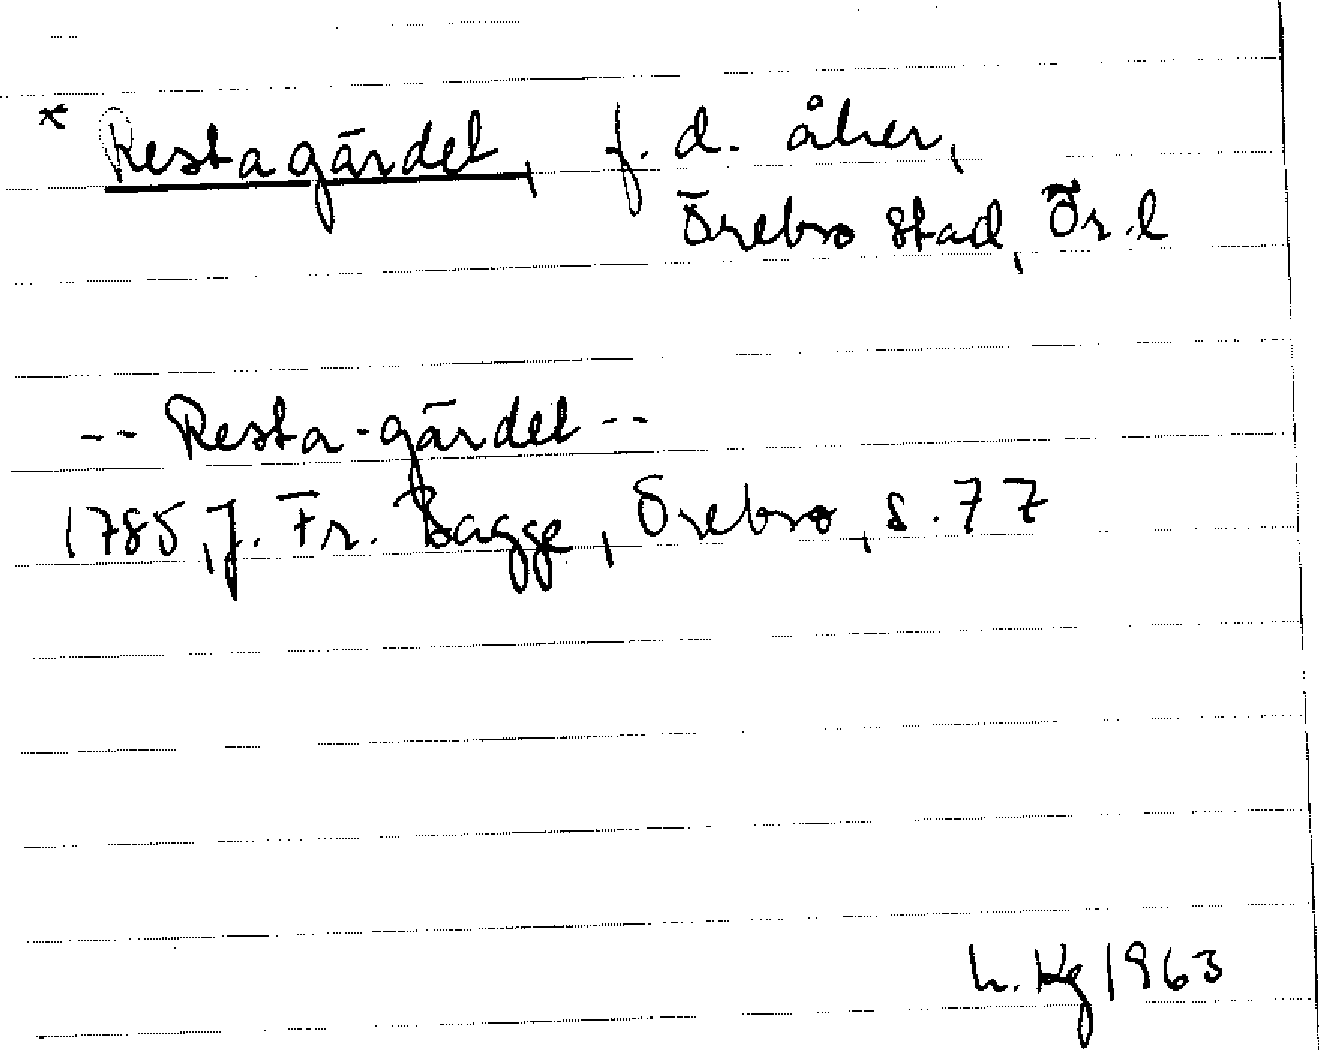 * Restagärdet, f. d. åker,
Örebro stad, Ör. l
-- Resta-gärdet --
1785, J. Fr. Bagge, Örebro, s. 77
L. Kg 1963